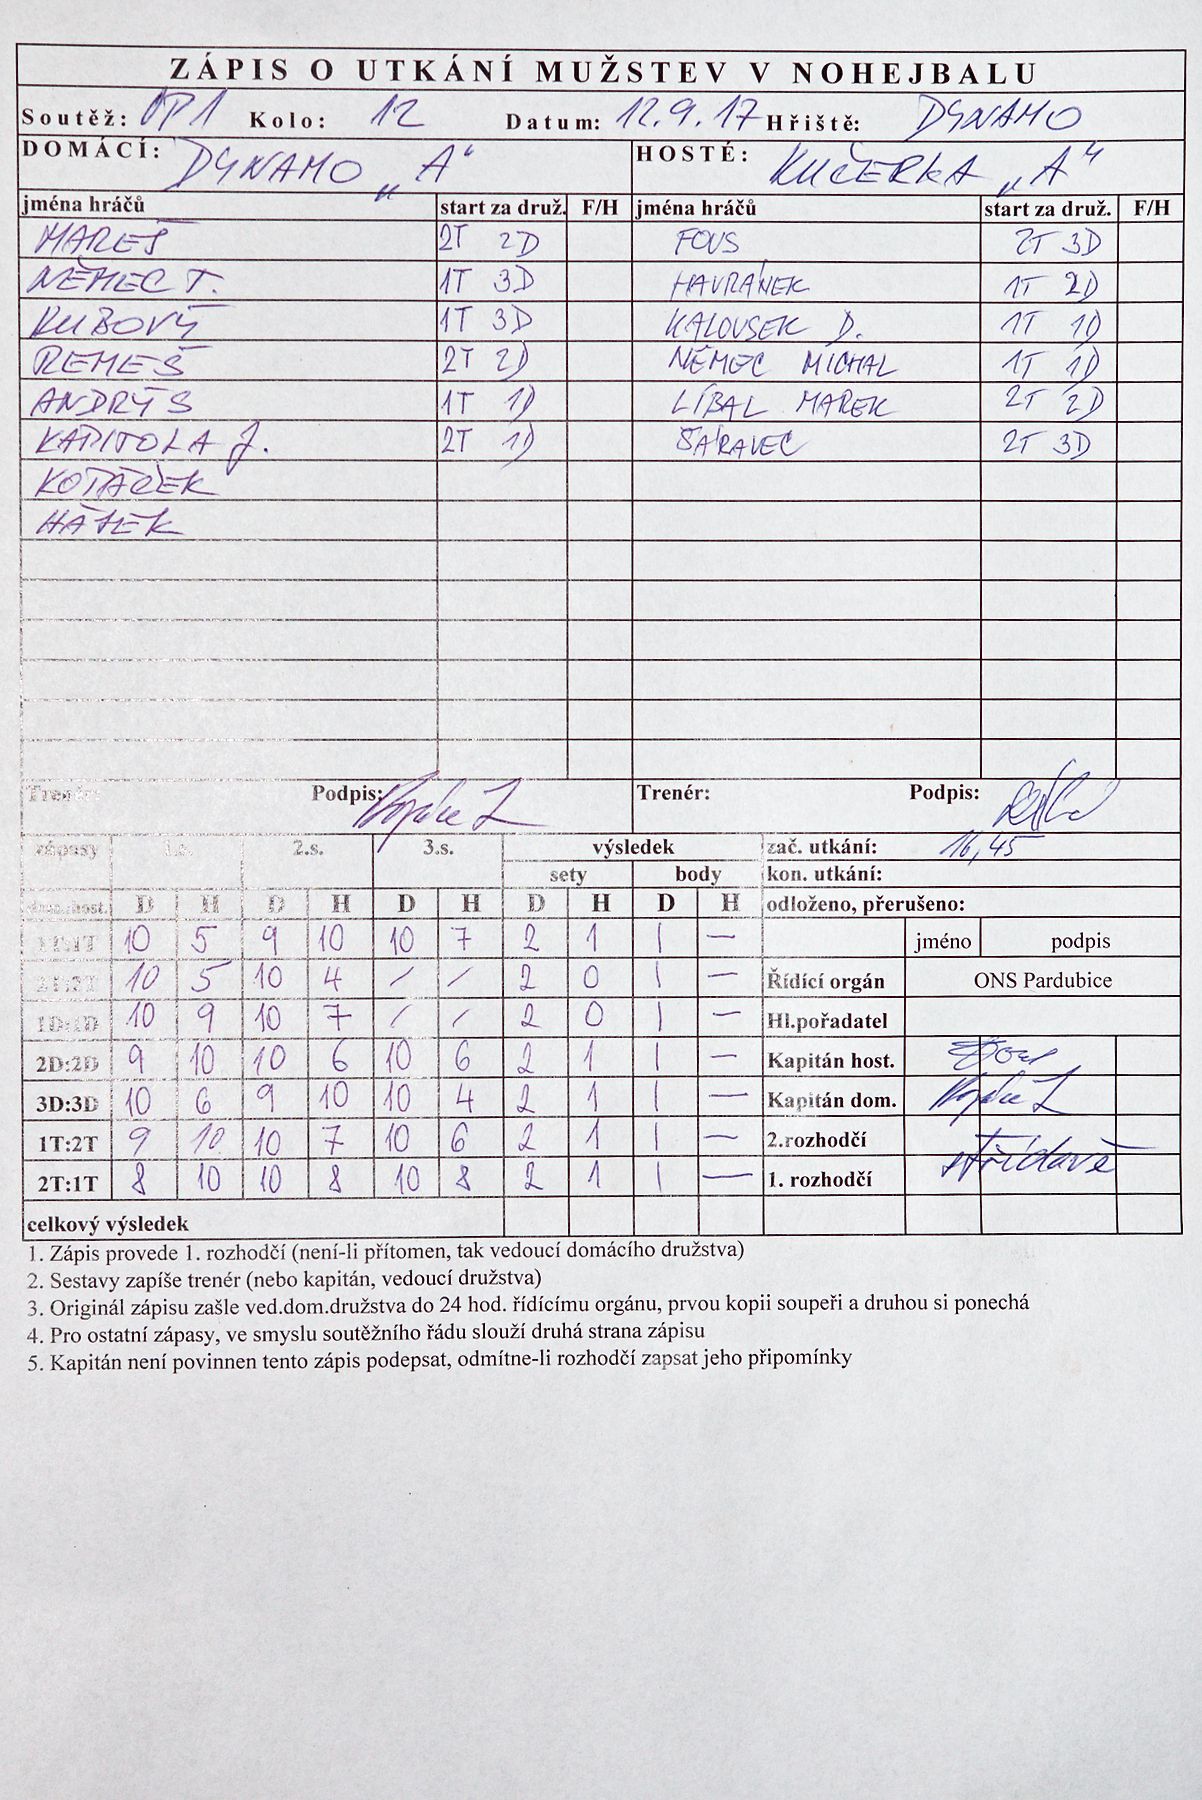 ZÁPIS O UTKÁNÍ MUŽSTEV V NOHEJBALU
Soutěž: OP1 Kolo: 12 Datum: 12.9.17 Hřiště: DYNAMO
DOMÁCÍ: DYNAMO „A“ HOSTÉ: KUČERKA „A“
jména hráčů start za druž. F/H jména hráčů start za druž. F/H
MAREŠ 2T 2D FOUS 2T 3D
NĚMEC T. 1T 3D HAVRÁNEK 1T 2D
KUBOVÝ 1T 3D KALOUSEK D. 1T 1D
REMEŠ 2T 2D NĚMEC MICHAL 1T 1D
ANDRÝS 1T 1D LÍBAL MAREK 2T 2D
KAPITOLA J. 2T 1D ŠÁRAVEC 2T 3D
KOTÁČEK
HÁJEK
Trenér: Podpis: Trenér: Podpis:
zápasy 1.s. 2.s. 3.s. výsledek zač. utkání: 16,45
sety body kon. utkání:
dom.:host. D H D H D H D H D H odloženo, přerušeno:
1T:1T 10 5 9 10 10 7 2 1 1 — jméno podpis
2T:2T 10 5 10 4 / / 2 0 1 — Řídící orgán ONS Pardubice
1D:1D 10 9 10 7 / / 2 0 1 — Hl.pořadatel
2D:2D 9 10 10 6 10 6 2 1 1 — Kapitán host.
3D:3D 10 6 9 10 10 4 2 1 1 — Kapitán dom.
1T:2T 9 10 10 7 10 6 2 1 1 — 2.rozhodčí
střídavě
2T:1T 8 10 10 8 10 8 2 1 1 — 1. rozhodčí
celkový výsledek
1. Zápis provede 1. rozhodčí (není-li přítomen, tak vedoucí domácího družstva)
2. Sestavy zapíše trenér (nebo kapitán, vedoucí družstva)
3. Originál zápisu zašle ved.dom.družstva do 24 hod. řídícímu orgánu, prvou kopii soupeři a druhou si ponechá
4. Pro ostatní zápasy, ve smyslu soutěžního řádu slouží druhá strana zápisu
5. Kapitán není povinnen tento zápis podepsat, odmítne-li rozhodčí zapsat jeho připomínky